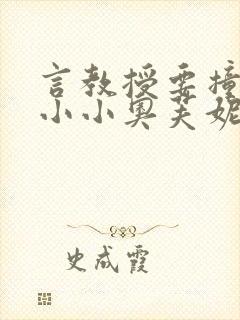 言教授要撞
小小奥芙妮
史成霞